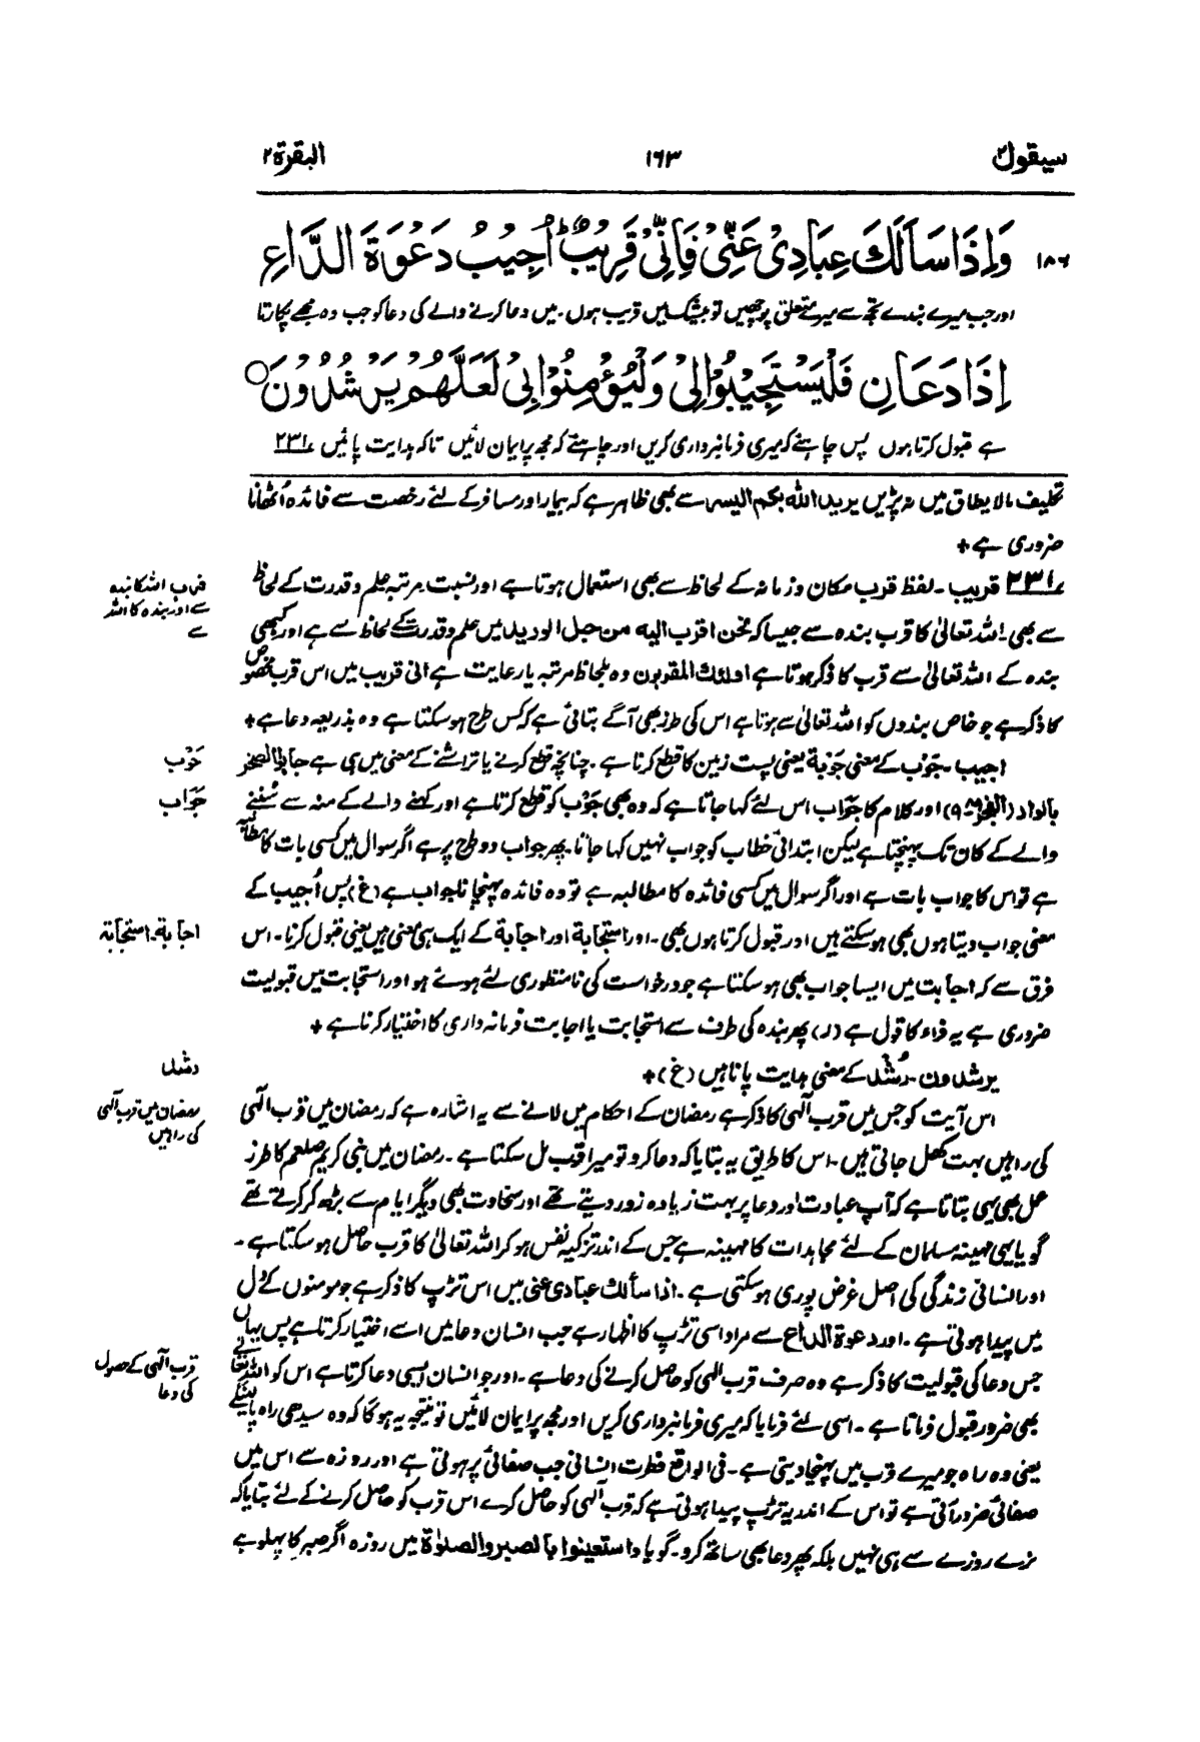 سیقول ۲
۱۶۳
البقرۃ ۲
۱۸۶ وَاِذَا سَاَلَكَ عِبَادِیْ عَنِّیْ فَاِنِّیْ قَرِیْبٌ ؕ اُجِیْبُ دَعْوَةَ الدَّاعِ
اور جب میرے بندے تجھ سے میرے متعلق پوچھیں تو بیشک میں قریب ہوں۔ میں دعا کرنے والے کی دعا کو جب وہ مجھے پکارتا
اِذَا دَعَانِ فَلْیَسْتَجِیْبُوْا لِیْ وَلْیُؤْمِنُوْا بِیْ لَعَلَّهُمْ یَرْشُدُوْنَ ○
ہے قبول کرتا ہوں پس چاہئے کہ میری فرمانبرداری کریں اور چاہئے کہ مجھ پر ایمان لائیں تاکہ ہدایت پائیں ۲۳۱
تکلیف مالا یطاق میں نہ پڑیں یرید اللہ بکم الیسر سے بھی ظاہر ہے کہ بیمار اور مسافر کے لئے رخصت سے فائدہ اُٹھانا
ضروری ہے +
۲۳۱ قریب۔ لفظ قرب مکان و زمانہ کے لحاظ سے بھی استعمال ہوتا ہے اور نسبت۔ مرتبہ علم و قدرت کے لحاظ
سے بھی۔ اللہ تعالیٰ کا قرب بندہ سے جیسا کہ نحن اقرب الیہ من حبل الورید میں علم و قدرت کے لحاظ سے ہے اور کبھی
بندہ کے اللہ تعالیٰ سے قرب کا ذکر ہوتا ہے اولئك المقربون وہ بلحاظ مرتبہ یا رعایت ہے انی قریب میں اس قرب مخصوص
کا ذکر ہے جو خاص بندوں کو اللہ تعالیٰ سے ہوتا ہے اس کی طرز بھی آگے بتائی ہے کہ کس طرح ہو سکتا ہے وہ بذریعہ دعا ہے +
قرب اللہ کا بندہ
سے اور بندہ کا اللہ
سے
اجیب۔ جَوْب کے معنی جَوْبة یعنی پست زمین کا قطع کرنا ہے۔ چنانچہ قطع کرنے یا تراشنے کے معنی میں ہی ہے جابوا الصخر
جَوْب
بالواد (الفجر ۹) اور کلام کا جَوَاب اس لئے کہا جاتا ہے کہ وہ بھی جَوْب کو قطع کرتا ہے اور کہنے والے کے منہ سے سُننے
جَوَاب
والے کے کان تک پہنچتا ہے لیکن ابتدائی خطاب کو جواب نہیں کہا جاتا۔ پھر جواب دو طرح پر ہے اگر سوال میں کسی بات کا مطالبہ
ہے تو اس کا جواب بات ہے اور اگر سوال میں کسی فائدہ کا مطالبہ ہے تو وہ فائدہ پہنچانا جواب ہے (غ) پس اُجیب کے
معنی جواب دیتا ہوں بھی ہو سکتے ہیں اور قبول کرتا ہوں بھی۔ اور استجابة اور اجابة کے ایک ہی معنی ہیں یعنی قبول کرنا۔ اس
اجابة۔ استجابة
فرق سے کہ اجابت میں ایسا جواب بھی ہو سکتا ہے جو درخواست کی نامنظوری لئے ہوئے ہو اور استجابت میں قبولیت
ضروری ہے یہ فراء کا قول ہے (ر) پھر بندہ کی طرف سے استجابت یا اجابت فرمانبرداری کا اختیار کرنا ہے +
یرشدون۔ رُشد کے معنی ہدایت پانا ہیں (غ) +
رشد
اس آیت کو جس میں قرب الٰہی کا ذکر ہے رمضان کے احکام میں لانے سے یہ اشارہ ہے کہ رمضان میں قرب الٰہی
رمضان میں قرب الٰہی
کی راہیں
کی راہیں بہت کھل جاتی ہیں۔ اس کا طریق یہ بتایا کہ دعا کرو تو میرا قرب مل سکتا ہے۔ رمضان میں نبی کریم صلعم کا طرز
عمل بھی یہی بتاتا ہے کہ آپ عبادت اور دعا پر بہت زیادہ زور دیتے تھے اور سخاوت بھی دیگر ایام سے بڑھ کر کرتے تھے
گویا یہی مہینہ مسلمان کے لئے مجاہدات کا مہینہ ہے جس کے اندر تزکیہ نفس ہو کر اللہ تعالیٰ کا قرب حاصل ہو سکتا ہے۔
اور انسانی زندگی کی اصل غرض پوری ہو سکتی ہے۔ اذا سألك عبادی عنی میں اس تڑپ کا ذکر ہے جو مومنوں کے دل
میں پیدا ہوتی ہے۔ اور دعوۃ الداع سے مراد اسی تڑپ کا اظہار ہے جب انسان دعا میں اسے اختیار کرتا ہے پس یہاں
جس دعا کی قبولیت کا ذکر ہے وہ صرف قرب الٰہی کو حاصل کرنے کی دعا ہے۔ اور جو انسان ایسی دعا کرتا ہے اس کو اللہ تعالیٰ
قرب الٰہی کے حصول
کی دعا
بھی ضرور قبول فرماتا ہے۔ اسی لئے فرمایا کہ میری فرمانبرداری کریں اور مجھ پر ایمان لائیں تو نتیجہ یہ ہوگا کہ وہ سیدھی راہ پائیں گے
یعنی وہ راہ جو میرے قرب میں پہنچا دیتی ہے۔ فی الواقع فطرت انسانی جب صفائی پر ہوتی ہے اور روزہ سے اس میں
صفائی ضرور آتی ہے تو اس کے اندر یہ تڑپ پیدا ہوتی ہے کہ قرب الٰہی کو حاصل کرے اس قرب کو حاصل کرنے کے لئے بتایا کہ
نرے روزے سے ہی نہیں بلکہ پھر دعا بھی ساتھ کرو۔ گویا واستعینوا بالصبر والصلوٰۃ میں روزہ اگر صبر کا پہلو ہے